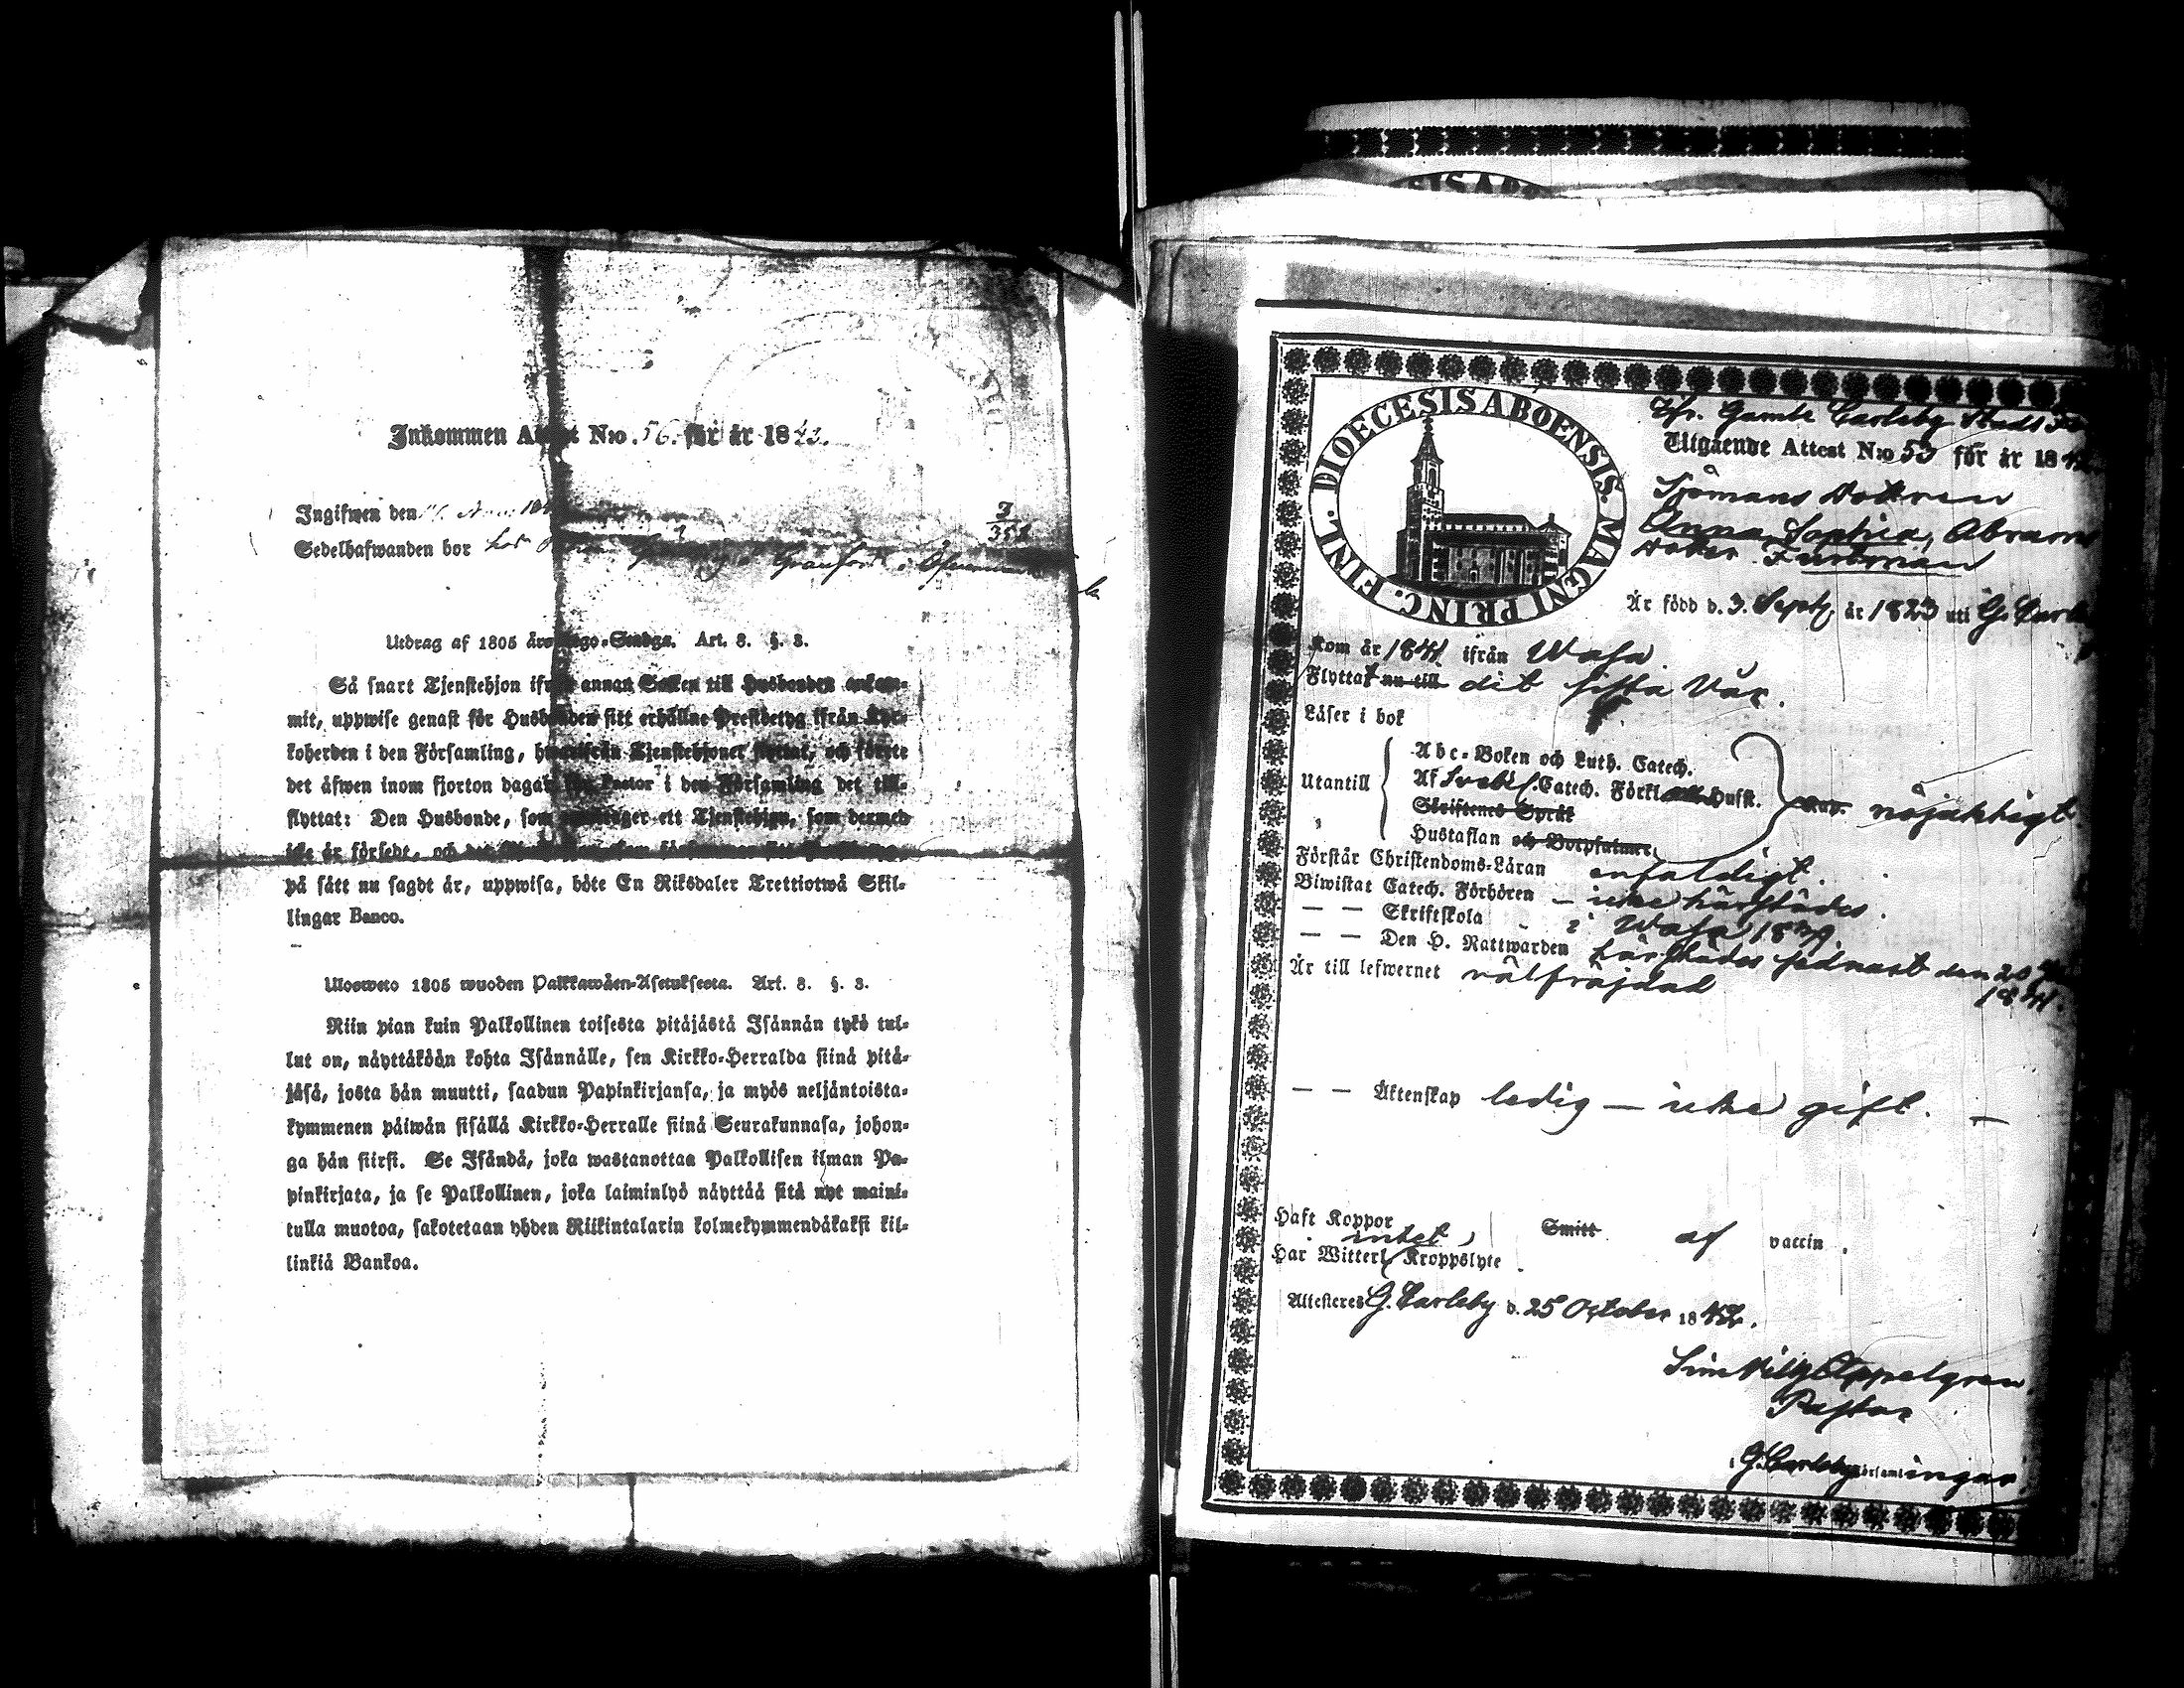 Inkommen Attest N:o 56. för år 1843.
Ingifwen den
Sedelhafwanden bor hos
3
Utdrag af 1805 års Lego-Stadga. Art. 8. §. 3.
Så snart Tjenstehjon ifrån annan Socken till Husbonden ankom-
mit, uppwise genast för Husbonden sitt erhållne Prestbetyg ifrån Kyr-
koherden i den Församling, hwarifrån Tjenstehjonet flyttat, och förete
det äfwen inom fjorton dagar för Pastor i den Församling det till-
flyttat: Den Husbonde, som emottager ett Tjenstehjon, som dermed
icke är försedt, och det
på sätt nu sagdt är, uppwisa, böte En Riksdaler Trettiotwå Skil-
lingar Banco.
Ulosweto 1805 wuoden Palkkawäen-Asetuksesta. Art. 8. §. 3.
Niin pian kuin Palkollinen toisesta pitäjästä Isännän tykö tul-
lut on, näyttäkään kohta Isännälle, sen Kirkko-Herralda siinä pitä-
jäsä, josta hän muutti, saadun Papinkirjansa, ja myös neljäntoista-
kymmenen päiwän sisällä Kirkko-Herralle siinä Seurakunnasa, johon-
ga hän siirsi. Se Isändä, joka wastanottaa Palkollisen ilman Pa-
pinkirjata, ja se Palkollinen, joka laiminlyö näyttää sitä nyt maini-
tulla muotoa, sakotetaan yhden Riikintalarin kolmekymmendäkaksi kil-
linkiä Bankoa.
DIOECESIS ABOENSIS. MAGNI PRINC. FINL.
Gamle Carleby Stads
Utgående Attest N:o 53 för år 1842
Sjömans Dottren
Anna Sophia, Abrams
dotter Furuman
Är född d. 3. Sept. år 1823 uti G. Carle
Kom år 1841 ifrån Wasa
Flyttat nu till dit sista Vår.
Läser i bok
Utantill
Abc-Boken och Luth. Catech.
Af Svebil. Catech. Förkl. Husf.
Skriftenes Språk
nöjaktigt.
Hustaflan och Botpsalmer
Förstår Christendoms-Läran enfaldigt.
Biwistat Catech. Förhören – icke härstädes.
— — Skriftskola i Wasa 1841
— — Den H. Nattwarden härstädes sednast den 20
1841.
Är till lefwernet välfräjdad
— — Äktenskap ledig — icke gift. —
Haft Koppor
intet
Smitt af vaccin.
Har Witterl. Kroppslyte
Attesteres G. Carleby d. 25 October 1842.
Sim Wilh Appelgren.
Pastor
i G. Carleby Församlingar